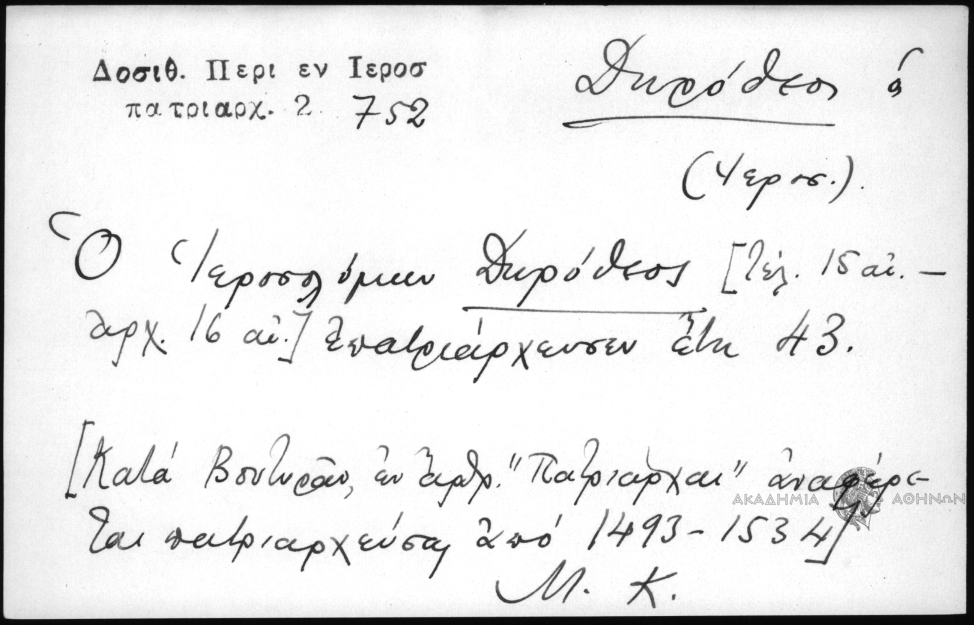 Δοσιθ. Περι εν Ιεροσ
πατριαρχ. 2. 752
Δωρόθεος ὁ
(Ἱεροσ.).
Ὁ Ἱεροσολύμων Δωρόθεος [τέλ. 15 αἰ. –
ἀρχ. 16 αἰ.] ἐπατριάρχευσεν ἔτη 43.
[Κατά Βουτυρᾶν, ἐν ἄρθρ. "Πατριάρχαι" ἀναφέρε-
ται πατριαρχεύσας ἀπό 1493 - 1534]
Μ. Κ.
ΑΚΑΔΗΜΙΑ ΑΘΗΝΩΝ